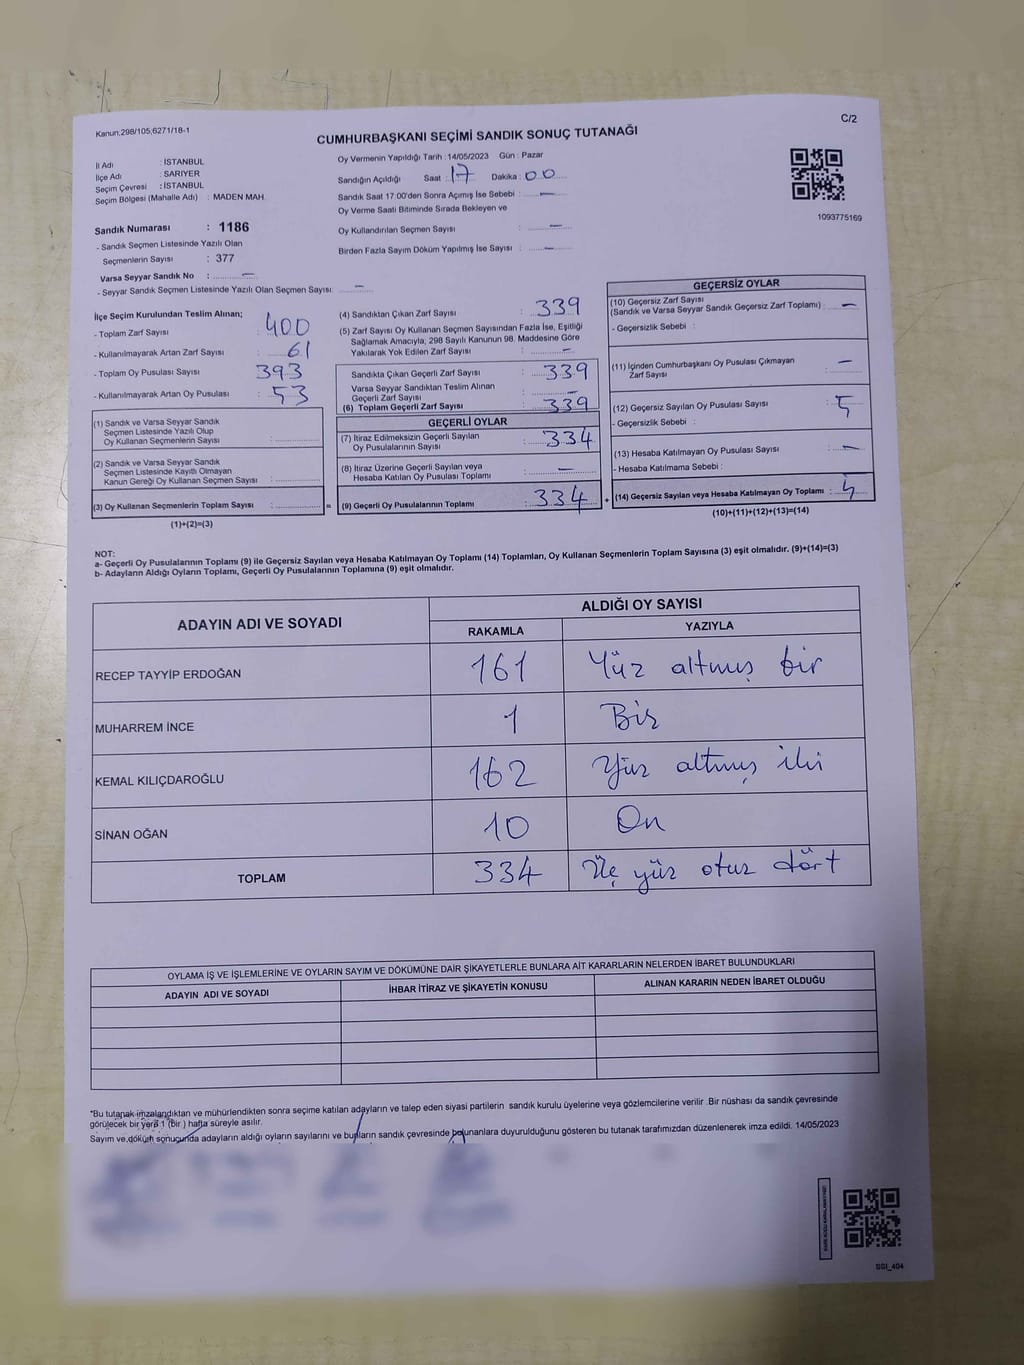 Kanun.298/105,6271/18-1
C/2
CUMHURBAŞKANI SEÇİMİ SANDIK SONUÇ TUTANAĞI
İl Adı : İSTANBUL
İlçe Adı : SARIYER
Seçim Çevresi : İSTANBUL
Seçim Bölgesi (Mahalle Adı) : MADEN MAH.
Oy Vermenin Yapıldığı Tarih :14/05/2023 Gün : Pazar
Sandığın Açıldığı Saat : 17 Dakika : 00
Sandık Saat 17.00'den Sonra Açımış İse Sebebi : —
Oy Verme Saati Bitiminde Sırada Bekleyen ve
Oy Kullandırılan Seçmen Sayısı : —
Birden Fazla Sayım Döküm Yapılmış İse Sayısı : —
1093775169
Sandık Numarası : 1186
- Sandık Seçmen Listesinde Yazılı Olan
Seçmenlerin Sayısı : 377
Varsa Seyyar Sandık No : —
- Seyyar Sandık Seçmen Listesinde Yazılı Olan Seçmen Sayısı: —
İlçe Seçim Kurulundan Teslim Alınan;
- Toplam Zarf Sayısı : 400
- Kullanılmayarak Artan Zarf Sayısı : 61
- Toplam Oy Pusulası Sayısı : 393
- Kullanılmayarak Artan Oy Pusulası : 53
(1) Sandık ve Varsa Seyyar Sandık
Seçmen Listesinde Yazılı Olup
Oy Kullanan Seçmenlerin Sayısı :
(2) Sandık ve Varsa Seyyar Sandık
Seçmen Listesinde Kayıtlı Olmayan
Kanun Gereği Oy Kullanan Seçmen Sayısı :
(3) Oy Kullanan Seçmenlerin Toplam Sayısı :
(1)+(2)=(3)
(4) Sandıktan Çıkan Zarf Sayısı : 339
(5) Zarf Sayısı Oy Kullanan Seçmen Sayısından Fazla İse, Eşitliği
Sağlamak Amacıyla, 298 Sayılı Kanunun 98. Maddesine Göre
Yakılarak Yok Edilen Zarf Sayısı : —
Sandıkta Çıkan Geçerli Zarf Sayısı : 339
Varsa Seyyar Sandıktan Teslim Alınan
Geçerli Zarf Sayısı : —
(6) Toplam Geçerli Zarf Sayısı : 339
GEÇERLİ OYLAR
(7) İtiraz Edilmeksizin Geçerli Sayılan
Oy Pusulalarının Sayısı : 334
(8) İtiraz Üzerine Geçerli Sayılan veya
Hesaba Katılan Oy Pusulası Toplamı : —
= (9) Geçerli Oy Pusulalarının Toplamı : 334
GEÇERSİZ OYLAR
(10) Geçersiz Zarf Sayısı
(Sandık ve Varsa Seyyar Sandık Geçersiz Zarf Toplamı) : —
- Geçersizlik Sebebi :
(11) İçinden Cumhurbaşkanı Oy Pusulası Çıkmayan
Zarf Sayısı : —
(12) Geçersiz Sayılan Oy Pusulası Sayısı : 5
- Geçersizlik Sebebi :
(13) Hesaba Katılmayan Oy Pusulası Sayısı : —
- Hesaba Katılmama Sebebi :
+ (14) Geçersiz Sayılan veya Hesaba Katılmayan Oy Toplamı : 5
(10)+(11)+(12)+(13)=(14)
NOT:
a- Geçerli Oy Pusulalarının Toplamı (9) ile Geçersiz Sayılan veya Hesaba Katılmayan Oy Toplamı (14) Toplamları, Oy Kullanan Seçmenlerin Toplam Sayısına (3) eşit olmalıdır. (9)+(14)=(3)
b- Adayların Aldığı Oyların Toplamı, Geçerli Oy Pusulalarının Toplamına (9) eşit olmalıdır.
ADAYIN ADI VE SOYADI
ALDIĞI OY SAYISI
RAKAMLA YAZIYLA
RECEP TAYYİP ERDOĞAN 161 Yüz altmış bir
MUHARREM İNCE 1 Bir
KEMAL KILIÇDAROĞLU 162 Yüz altmış iki
SİNAN OĞAN 10 On
TOPLAM 334 Üç yüz otuz dört
OYLAMA İŞ VE İŞLEMLERİNE VE OYLARIN SAYIM VE DÖKÜMÜNE DAİR ŞİKAYETLERLE BUNLARA AİT KARARLARIN NELERDEN İBARET BULUNDUKLARI
ADAYIN ADI VE SOYADI İHBAR İTİRAZ VE ŞİKAYETİN KONUSU ALINAN KARARIN NEDEN İBARET OLDUĞU
*Bu tutanak imzalandıktan ve mühürlendikten sonra seçime katılan adayların ve talep eden siyasi partilerin sandık kurulu üyelerine veya gözlemcilerine verilir .Bir nüshası da sandık çevresinde
görülecek bir yere 1 (bir ) hafta süreyle asılır.
Sayım ve döküm sonucunda adayların aldığı oyların sayılarını ve bunların sandık çevresinde bulunanlara duyurulduğunu gösteren bu tutanak tarafımızdan düzenlenerek imza edildi. 14/05/2023
SSI_404